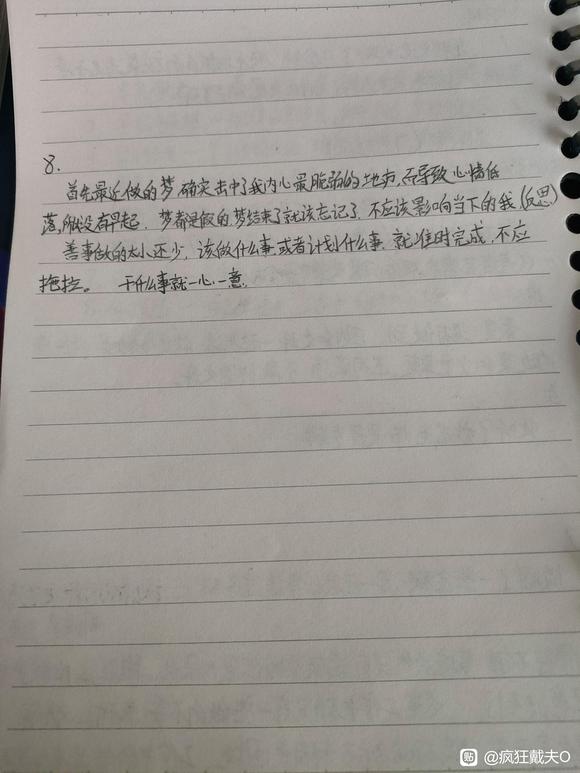 8.
首先最近做的梦确实击中了我内心最脆弱的地方,而导致心情低
落,所以没有早起,梦都是假的,梦结束了就该忘记了,不应该影响当下的我(反思)
善事做的太小还少,该做什么事,或者计划什么事,就准时完成,不应
拖拉。 干什么事就一心一意.
贴 @疯狂戴夫O